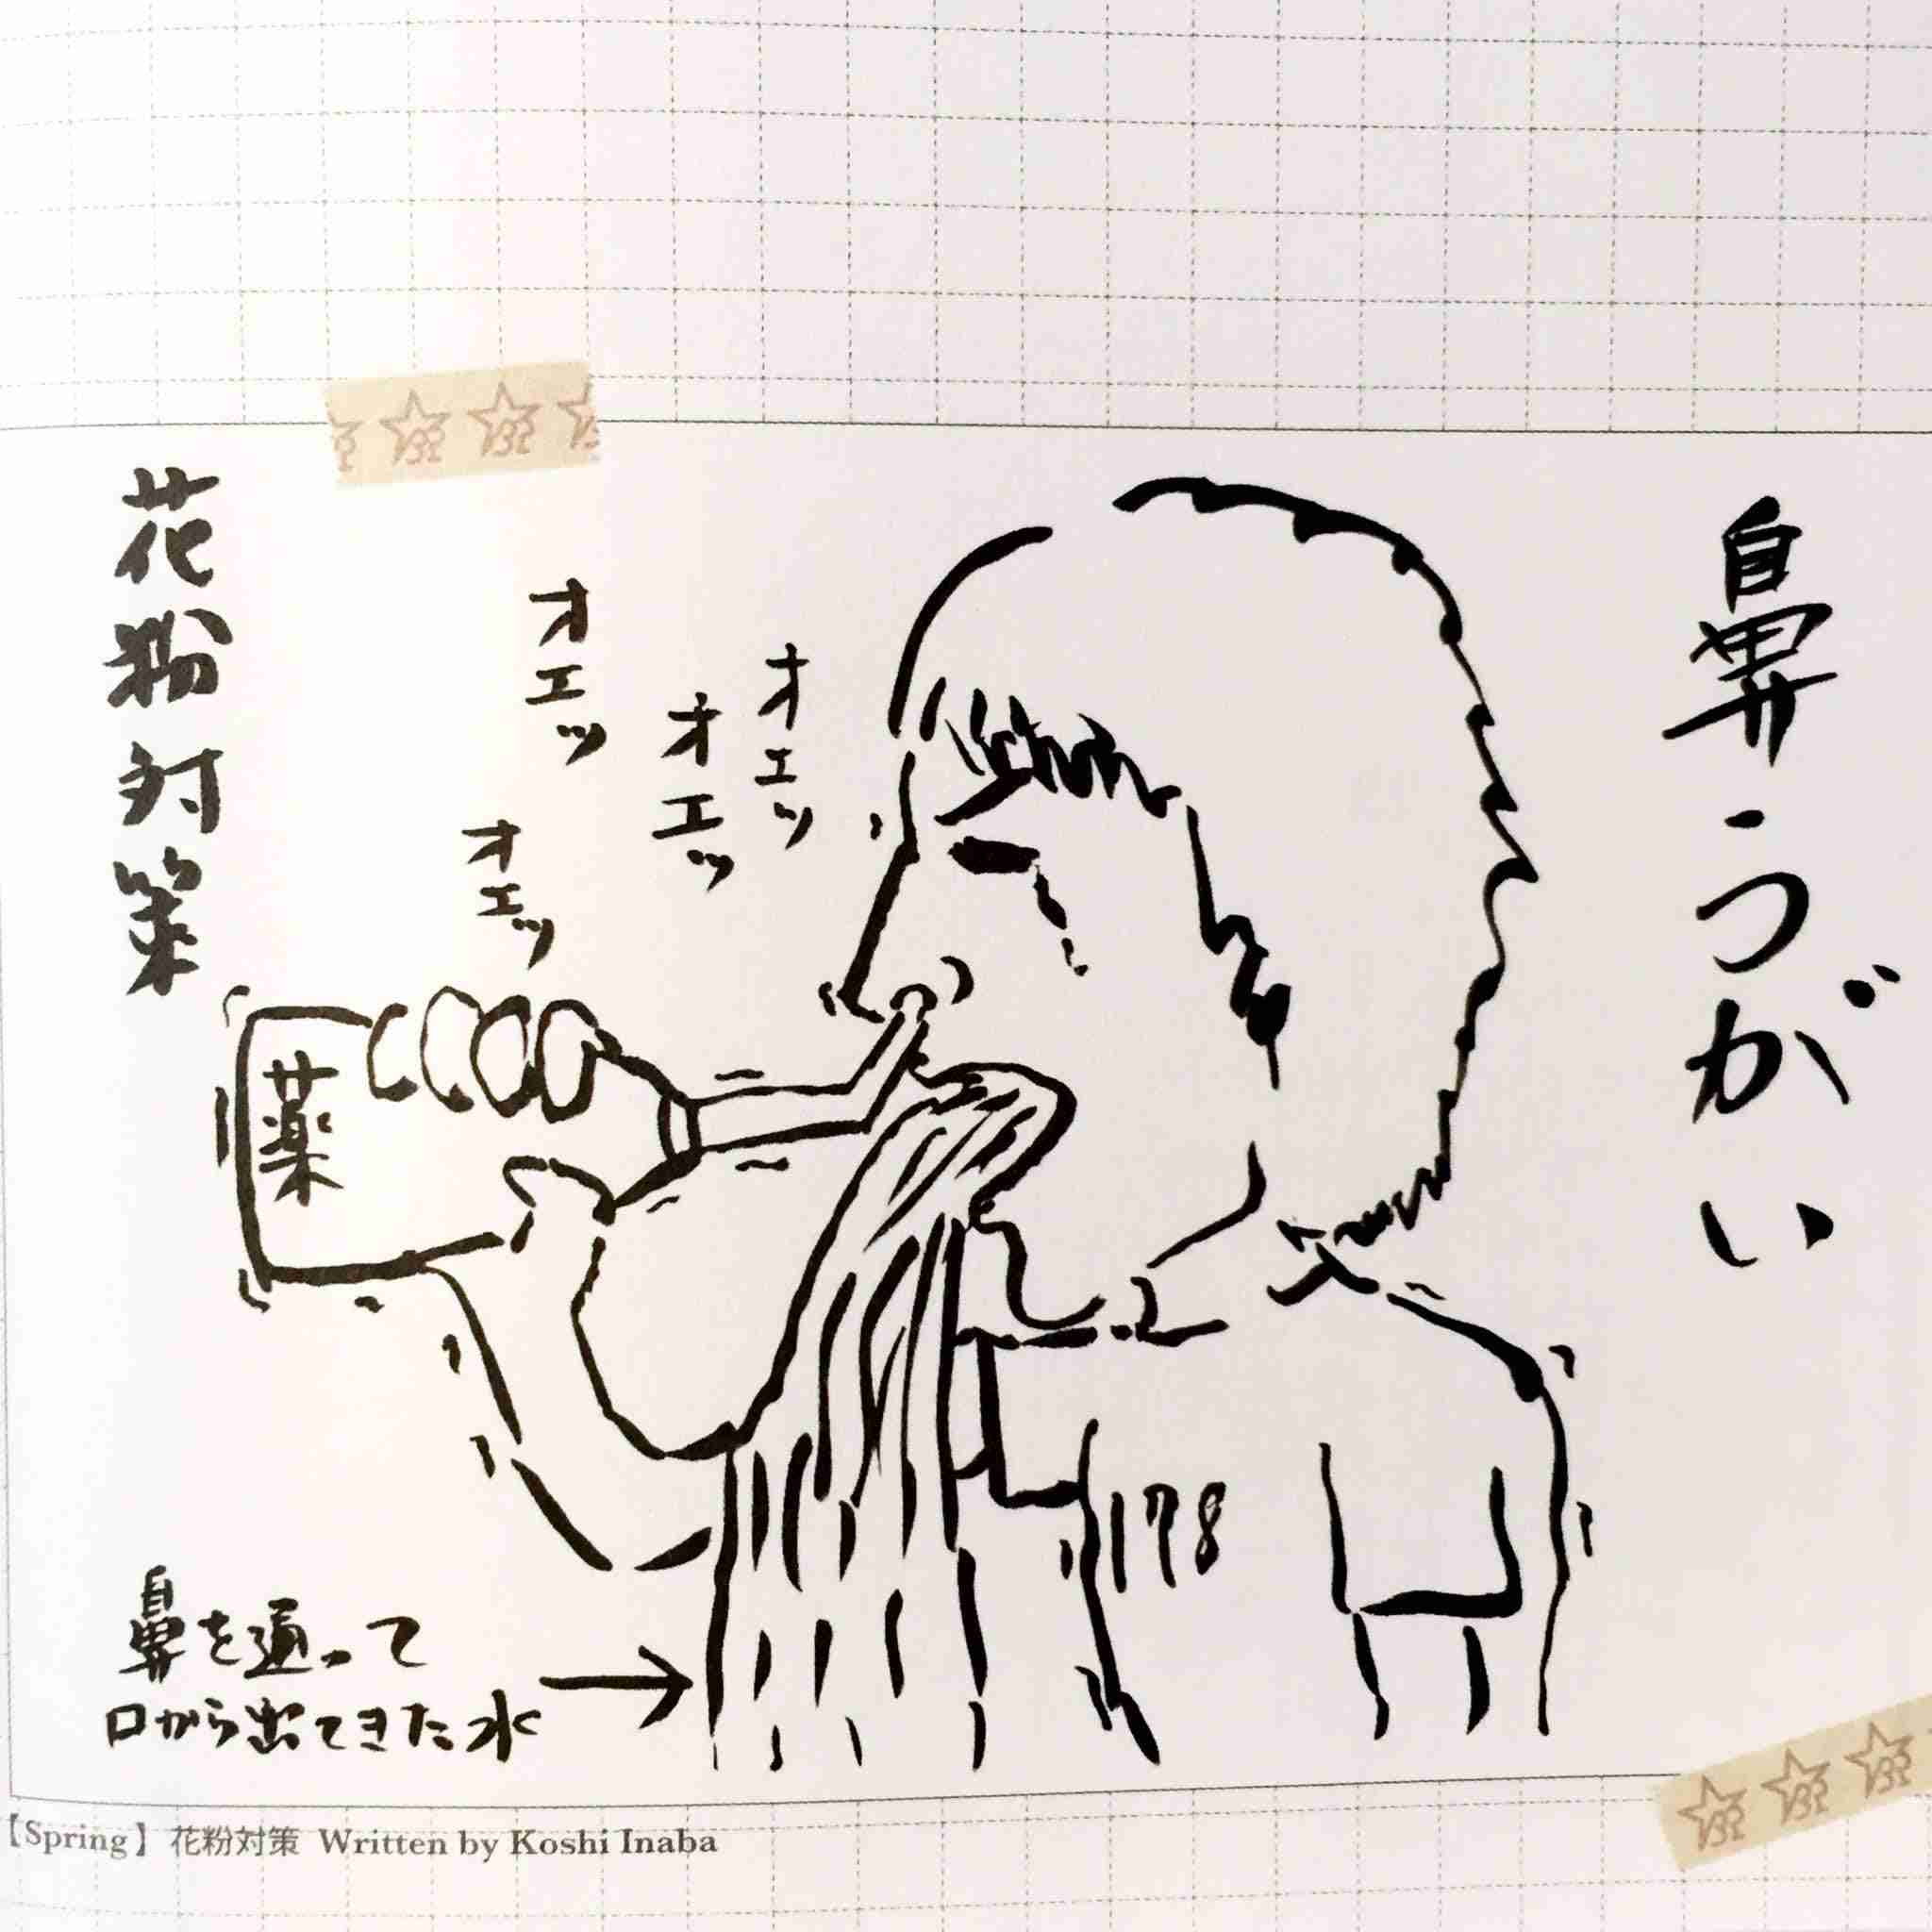 鼻うがい
花粉対策
オエッ
オエッ
オエッ
オエッ
薬
178
鼻を通って
口から出てきた水
【Spring】花粉対策 Written by Koshi Inaba